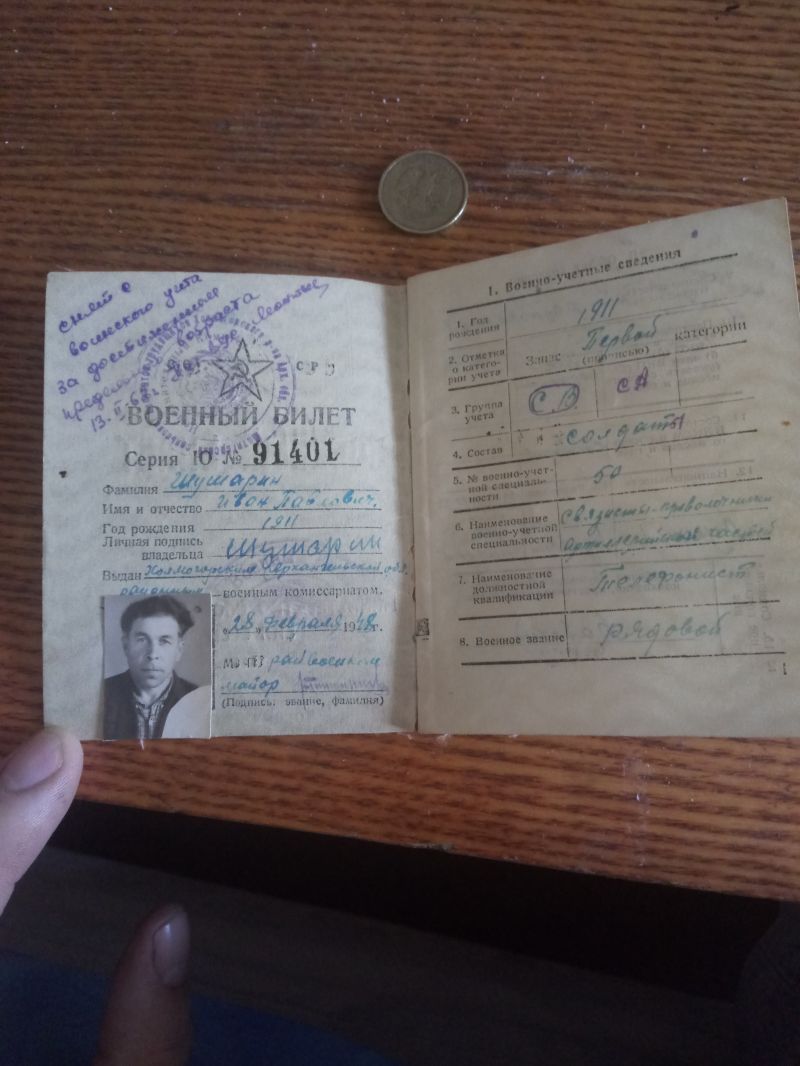 снят с
воинского учета
за достижением
предельного возраста
СССР
ВОЕННЫЙ БИЛЕТ
Серия Ю № 91401
Фамилия Шушарин
Имя и отчество Иван Павлович.
Год рождения 1911
Личная подпись
владельца Шушарин
Выдан Холмогорским Архангельской обл.
районным военным комиссариатом.
„28„ февраля 1948г.
райвоенком
майор
(Подпись: звание, фамилия)
1. Военно-учетные сведения
1. Год
рождения 1911
2. Отметка
о катего-
рии учета
Запас Первой категории
(прописью)
3. Группа
учета
СВ СА
4. Состав солдаты
5. № военно-учет-
ной специаль-
ности
50
6. Наименование
военно-учетной
специальности
связисты-проволочники
артиллерийских частей
7. Наименование
должностной
квалификации
Телефонист
8. Военное звание рядовой
1